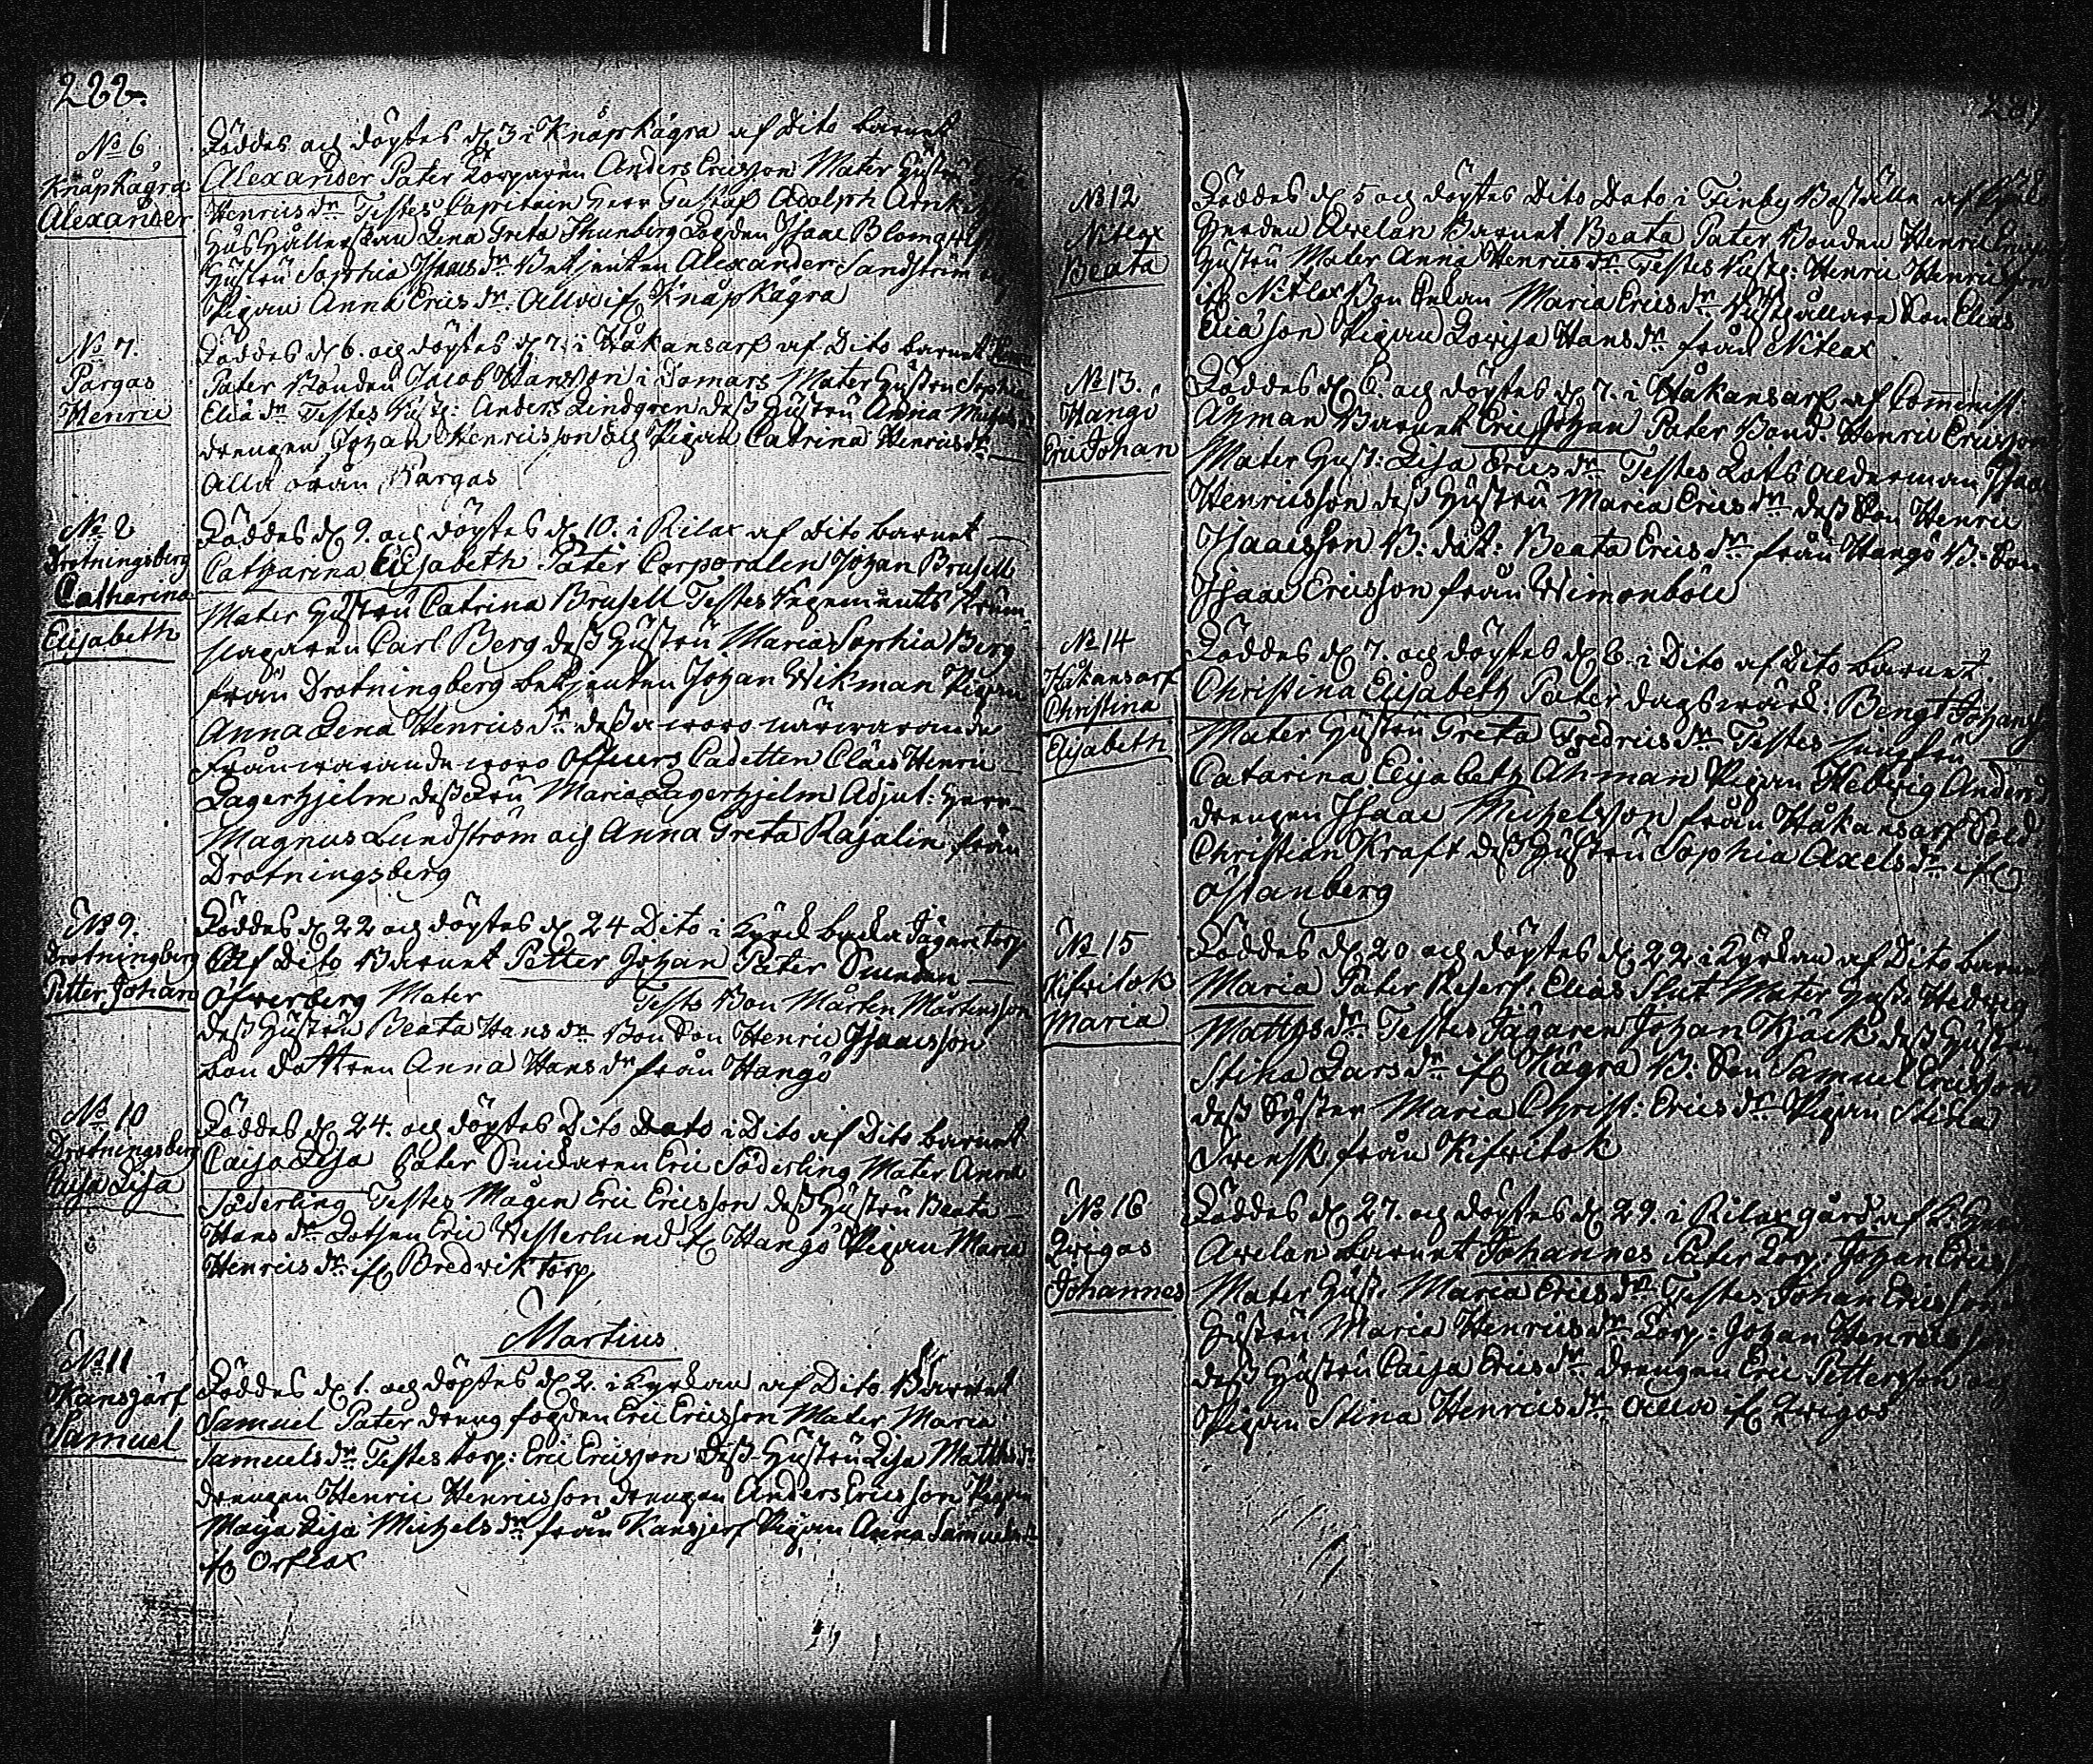 288.
No 6
Knåpkägra
Alexander
Föddes och döptes d. 3 i Knåpkägra af Dito barnet
Alexander Pater Torparen Anders Ericsson Mater Hustru
Henricsdr. Testes Capitain Herr Gustaf Adolph
Hushållerskan Lena Greta Thunberg Isaac Blomqvist
Hustru Sophia Isaacsdr. Betjenten Alexander Sandström
Pigan Anna Ericsdr. Alla if. Knåpkägra
No 7.
Pargas
Henric
Föddes d. 6. och döptes d. 7. i Håkansarf af Dito barnet
Pater Bonden Jacob Hansson i Gomars Mater Hustru Sophia
Eliædr. Testes Anders Lindgren dess Hustru Anna
drengen Johan Henricsson och Pigan Catrina Henricsdr.
Alla från Pargas
No 8
Drotningsberg
Catharina
Elisabeth
Föddes d. 9. och döptes d. 10. i Rilax af Dito barnet
Catharina Elisabeth Pater Corporalen Johan Brusell
Mater Hustru Catrina Brusell Testes Regements Trum=
slagaren Carl Berg dess Hustru Maria Sophia Berg
från Drotningberg betjenten Johan Wikman Pigan
Anna Lena Henricsdr. dessa woro närwarande
Frånwarande woro Officers Cadetten Claës Henric
Lagerhjelm dess Fru Maria Lagerhjelm Adjut: Herr
Magnus Lundström och Anna Greta Rajalin från
Drotningsberg
No 9.
Drotningberg
Petter Johan
Föddes d. 22 och döptes d. 24 Dito i backa Jägaretorp
Af Dito Barnet Petter Johan Pater Smeden
Öfwerberg Mater Testes Bon Mårten Mårtensson
dess Hustru Beata Hansdr. Bon Son Henric Isaacsson
bon dottren Anna Hansdr från Hangö
No 10
Drotningsberg
Caisa Lisa
Föddes d. 24. och döptes Dito Dato i Dito af Dito barnet
Caisa Lisa Pater Snickaren Eric Söderling Mater Anna
Söderling Testes Mågen Eric Ericsson dess Hustru Beata
Hansdr. Lotsen Eric Westerlund if. Hangö Pigan Maria
Henricsdr. if. Bredviktorp
Martius
No 11
Kansjärf
Samuel
Föddes d. 1. och döptes d. 2. i Kyrkan af Dito Barnet
Samuel Pater dreng fogden Eric Ericsson Mater Maria
Samuelsdr. Testes torp: Eric Ericsson dess Hustru Lisa Mattsdr
drengen Henric Henricsson drengen Anders Ericsson Pigan
Maija Lisa Michelsdr. från Kansjerf Pigan Anna Samuelsdr
if. Orslax
No 12
Nitlax
Beata
Föddes d. 5 och döptes Dito Dato i Finby Boställe af
Herden Awelan Barnet Beata Pater Bonden Henric
Hustru Mater Anna Henricsdr. Testes Henric Henricsson
if. Nitlax Bon Enkan Maria Ericsdr. Son Elias
Eliæson Pigan Lovisa Hansdr. från Nitlax
No 13.
Hangö
Eric Johan
Föddes d. 6. och döptes d. 7. i Håkansarf af Comminist
Åhman Barnet Eric Johan Pater Bond: Henric Ericsson
Mater Hust: Lisa Ericsdr. Testes Lots alderman Isaac
Henricsson dess Hustru Maria Ericsdr. dess Son Henric
Isaacsson B: dot: Beata Ericsdr. från Hangö B: Son
Isaac Ericsson från Wimonböle
No 14
Håkansarf
Christina
Elisabeth
Föddes d. 7. och döptes d. 8. i Dito af Dito barnet.
Christina Elisabeth Pater dagswärk: Bengt Johansson
Mater Hustru Greta Fredricsdr. Testes Jungfru
Catarina Elisabeth Åhman Pigan Hedwig Andersdr
drengen Isaac Michelsson från Håkansarf Sold:
Christian Kraft dess Hustru Sophia Axelsdr. if.
Östanberg
No 15
Kifwitok
Maria
Föddes d. 20 och döptes d. 22 i Kyrkan af Dito barnet
Maria Pater Reserf. Elias Slut Mater Hust: Hedwig
Mattsdr. Testes Jägaren Johan Kjäck dess Hustru
Stina Larsdr. if. Kägra B: Son Samuel Ericsson
dess Syster Maria Christ: Ericsdr. Pigan Stina
Swensk från Kifwitok
No 16
Qwigos
Johannes
Föddes d. 27. och döptes d. 29. i Rilax gård af
Awelan barnet Johannes Pater Torp: Johan Erics
Mater Hust: Maria Ericsdr. Testes Johan Ericsson
Hustru Maria Henricsdr. Torp: Johan Henricsson
dess Hustru Caisa Ericsdr. drengen Eric Pettersson och
Pigan Stina Henricsdr. alla if. Qwigos